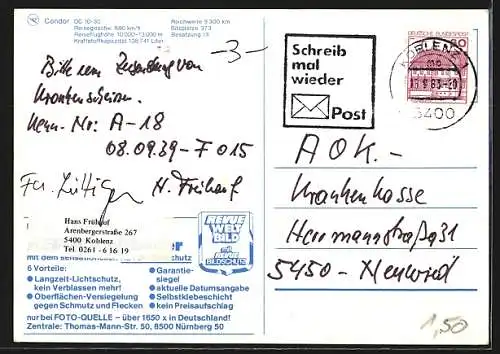 Condor DC 10-30
Reisegeschw. 880 km/h
Reiseflughöhe 10 000-13 000 m
Kraftstoffkapazität 138 741 Liter
Reichweite 9 300 km
Sitzplätze 373
Besatzung 13
-3-
Bitte um Zusendung von
Krankenscheinen.
Kenn-Nr: A-18
08.09.39-F 015
H. Frühauf
Hans Frühauf
Arenbergerstraße 267
5400 Koblenz
Tel 0261 - 6 16 19
mit dem
6 Vorteile:
● Langzeit-Lichtschutz,
kein Verblassen mehr!
● Oberflächen-Versiegelung
gegen Schmutz und Flecken
● Garantie-
siegel
● aktuelle Datumsangabe
● Selbstklebeschicht
● kein Preisaufschlag
nur bei FOTO-QUELLE – über 1650 x in Deutschland!
Zentrale: Thomas-Mann-Str. 50, 8500 Nürnberg 50
REVUE
WELT
BILD
mit
REVUE
BILDSCHUTZ
Schreib
mal
wieder
Post
DEUTSCHE BUNDESPOST
KOBLENZ 1
mg
5400
AOK.-
Krankenkasse
Hermannstraße 31
5450-Neuwied
1,50